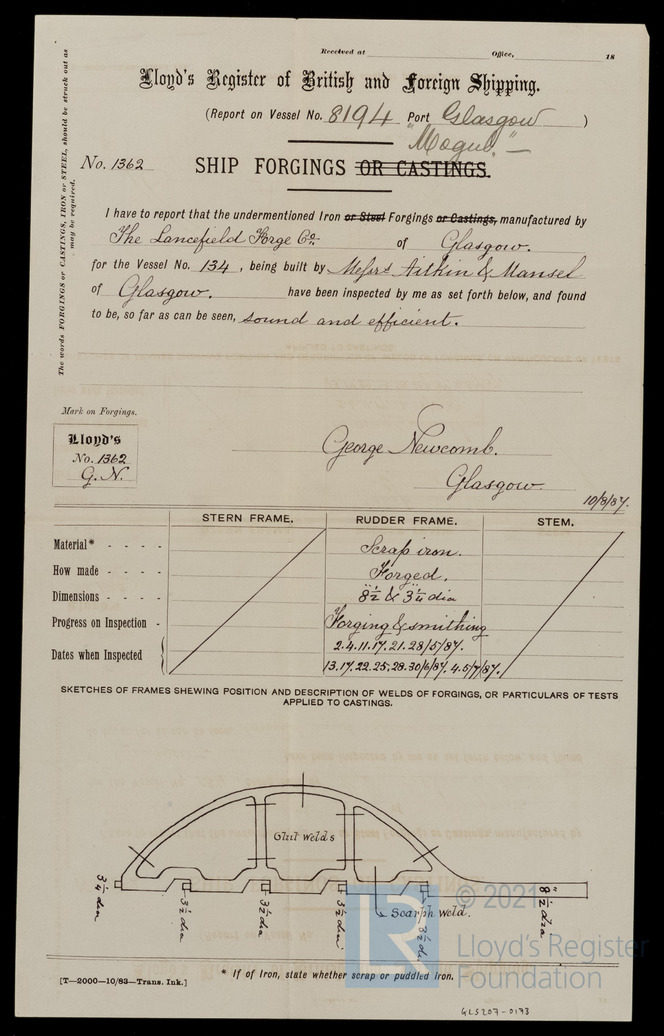 Received at Office, 18
Lloyd's Register of British and Foreign Shipping.
(Report on Vessel No. 8194 Port Glasgow )
"Mogul" —
No. 1362 SHIP FORGINGS OR CASTINGS.
The words FORGINGS or CASTINGS, IRON or STEEL, should be struck out as may be required.
I have to report that the undermentioned Iron or Steel Forgings or Castings, manufactured by
The Lancefield Forge Co. of Glasgow.
for the Vessel No. 134, being built by Messrs Aitkin & Mansel
of Glasgow. have been inspected by me as set forth below, and found
to be, so far as can be seen, sound and efficient.
Mark on Forgings.
Lloyd's
No. 1362
G. N.
George Newcomb.
Glasgow.
10/8/87.
STERN FRAME. RUDDER FRAME. STEM.
Material* - - - - Scrap iron.
How made - - - - Forged.
Dimensions - - - - 8½" & 3¼" dia
Progress on Inspection - Forging & smithing
Dates when Inspected 2.4.11.17.21.28/5/87.
13.17.22.25.28.30/6/87. 4.5/7/87.
SKETCHES OF FRAMES SHEWING POSITION AND DESCRIPTION OF WELDS OF FORGINGS, OR PARTICULARS OF TESTS
APPLIED TO CASTINGS.
Glut welds
3¼ dia
3½ dia
3½ dia
3½ dia
Scarph weld.
3½ dia
8½" dia
© 2021
LR
Lloyd's Register
Foundation
* If of Iron, state whether scrap or puddled iron.
[T—2000—10/83—Trans. Ink.]
GLS207-0173